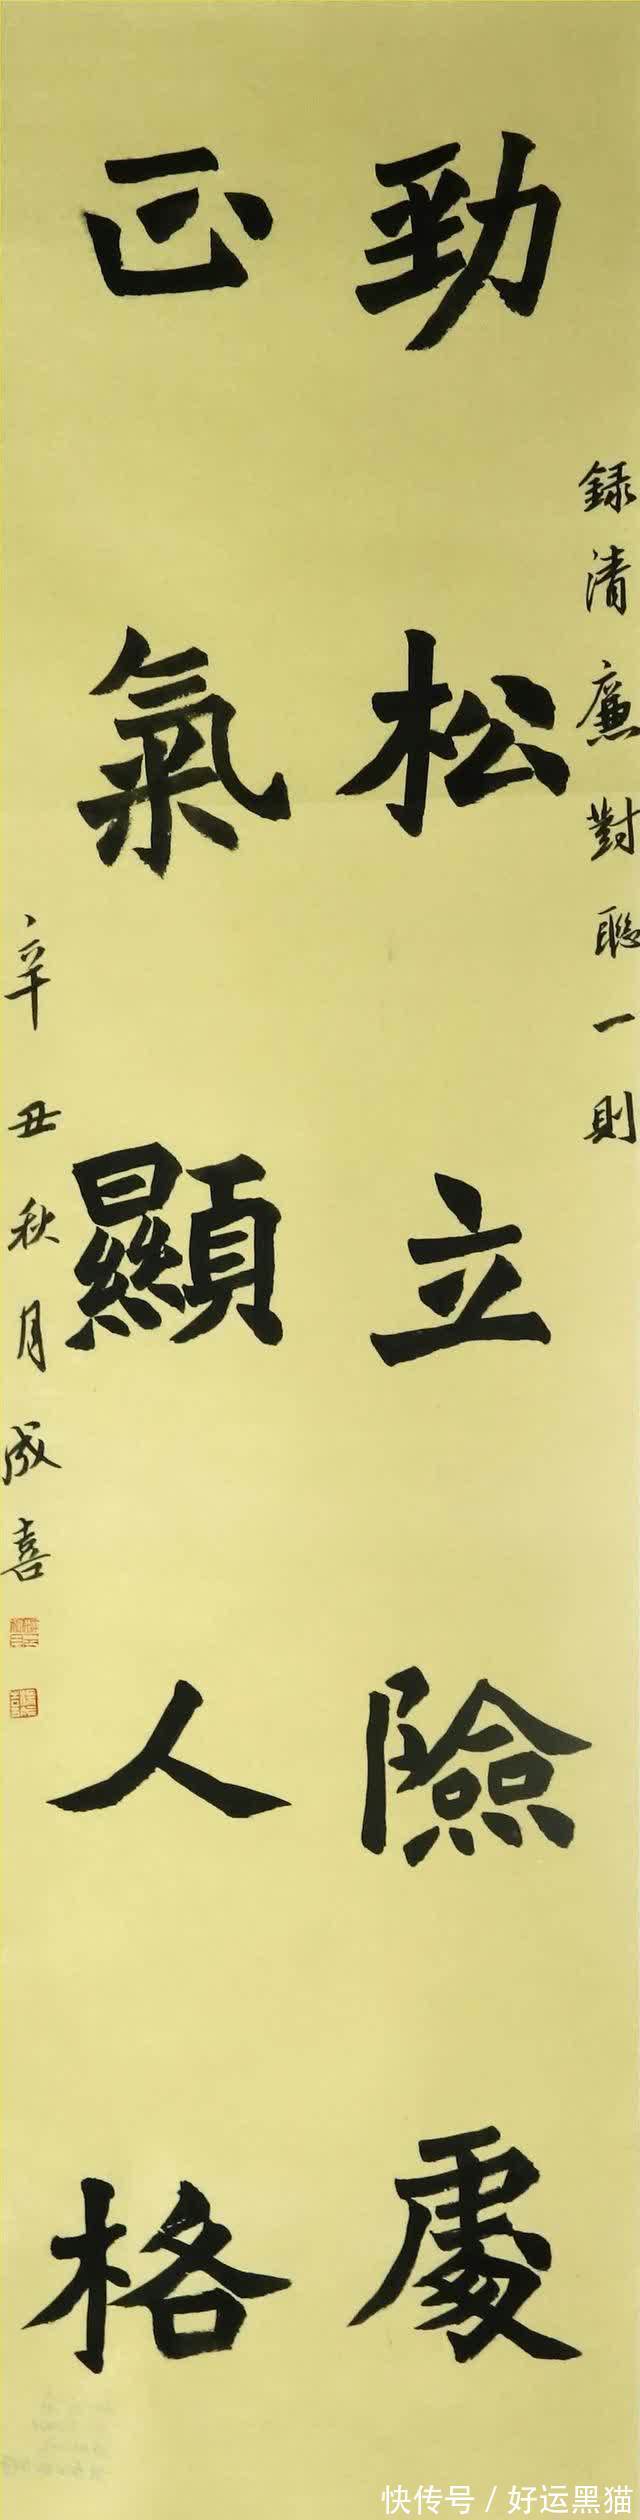 錄清廉對聯一則
勁松立險處
正氣顯人格
辛丑秋月成喜
快传号／好运黑猫